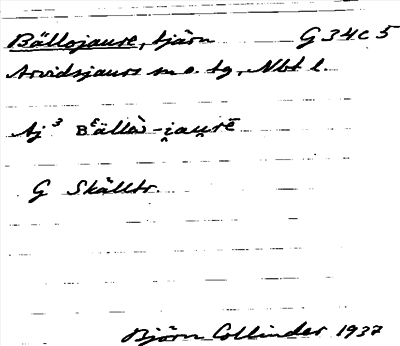 Bällojaure, tjärn G34c5
Arvidsjaurs sn o. tg, Nbt l.
Aj³ Bᴱällò-i̯au̯rē
G Skälltr.
Björn Collinder 1937